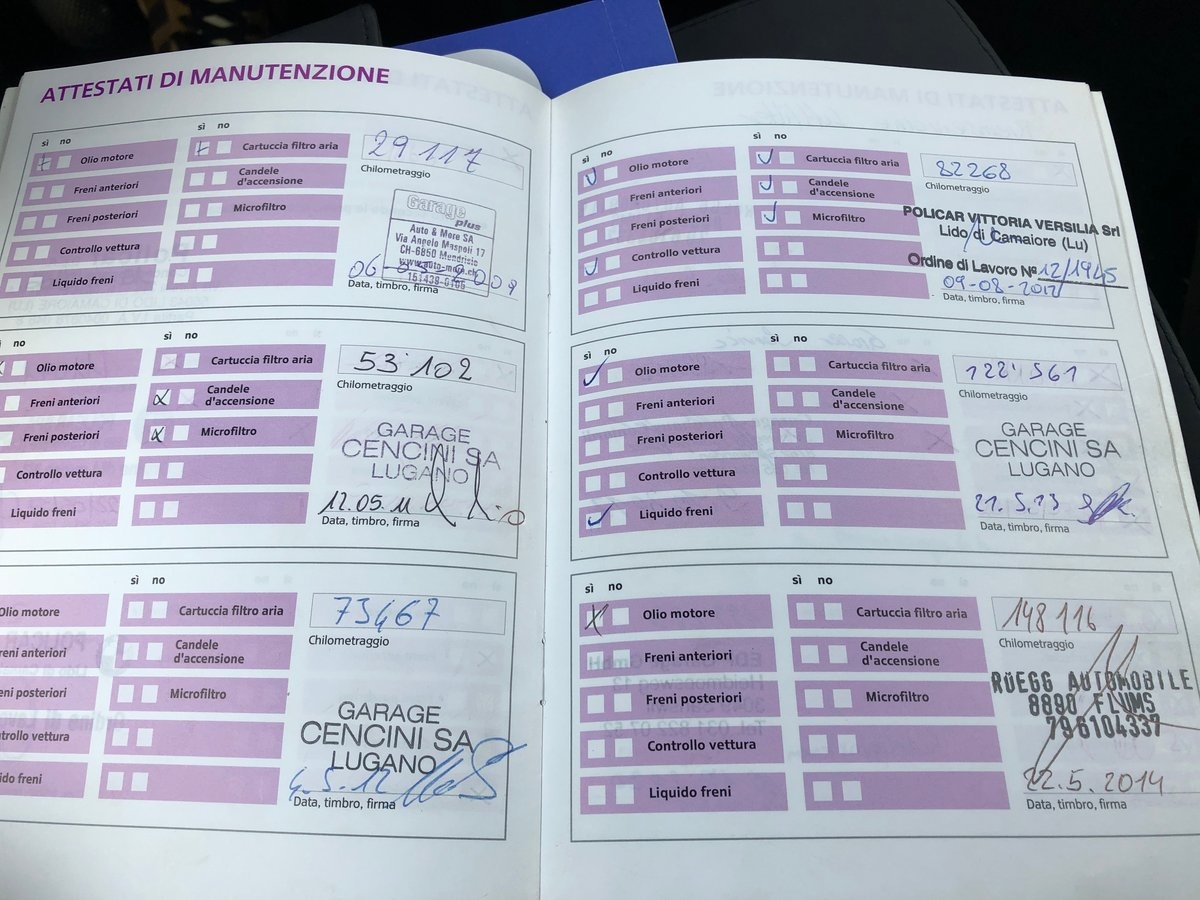 ATTESTATI DI MANUTENZIONE
sì no
sì no
Olio motore
Cartuccia filtro aria
29 117
Chilometraggio
Freni anteriori
Candele
d'accensione
Freni posteriori
Microfiltro
Controllo vettura
Liquido freni
Garage
plus
Auto & More SA
Via Angelo Maspoli 17
CH-6850 Mendrisio
Data, timbro, firma
no
sì no
Olio motore
Cartuccia filtro aria
53'102
Chilometraggio
Freni anteriori
Candele
d'accensione
Freni posteriori
Microfiltro
Controllo vettura
Liquido freni
GARAGE
CENCINI SA
LUGANO
12.05.11
Data, timbro, firma
sì no
Olio motore
Cartuccia filtro aria
73467
Chilometraggio
eni anteriori
Candele
d'accensione
eni posteriori
Microfiltro
trollo vettura
ido freni
GARAGE
CENCINI SA
LUGANO
4.5.12
Data, timbro, firma
sì no
sì no
Olio motore
Cartuccia filtro aria
82268
Chilometraggio
Freni anteriori
Candele
d'accensione
Freni posteriori
Microfiltro
Controllo vettura
Liquido freni
POLICAR VITTORIA VERSILIA Srl
Lido di Camaiore (Lu)
Ordine di Lavoro N° 12/1945
09-08-2012
Data, timbro, firma
sì no
sì no
Olio motore
Cartuccia filtro aria
122'561
Chilometraggio
Freni anteriori
Candele
d'accensione
Freni posteriori
Microfiltro
Controllo vettura
Liquido freni
GARAGE
CENCINI SA
LUGANO
21.5.13
Data, timbro, firma
sì no
sì no
Olio motore
Cartuccia filtro aria
148 116
Chilometraggio
Freni anteriori
Candele
d'accensione
Freni posteriori
Microfiltro
Controllo vettura
Liquido freni
RÜEGG AUTOMOBILE
8890 FLUMS
796104337
22.5.2014
Data, timbro, firma